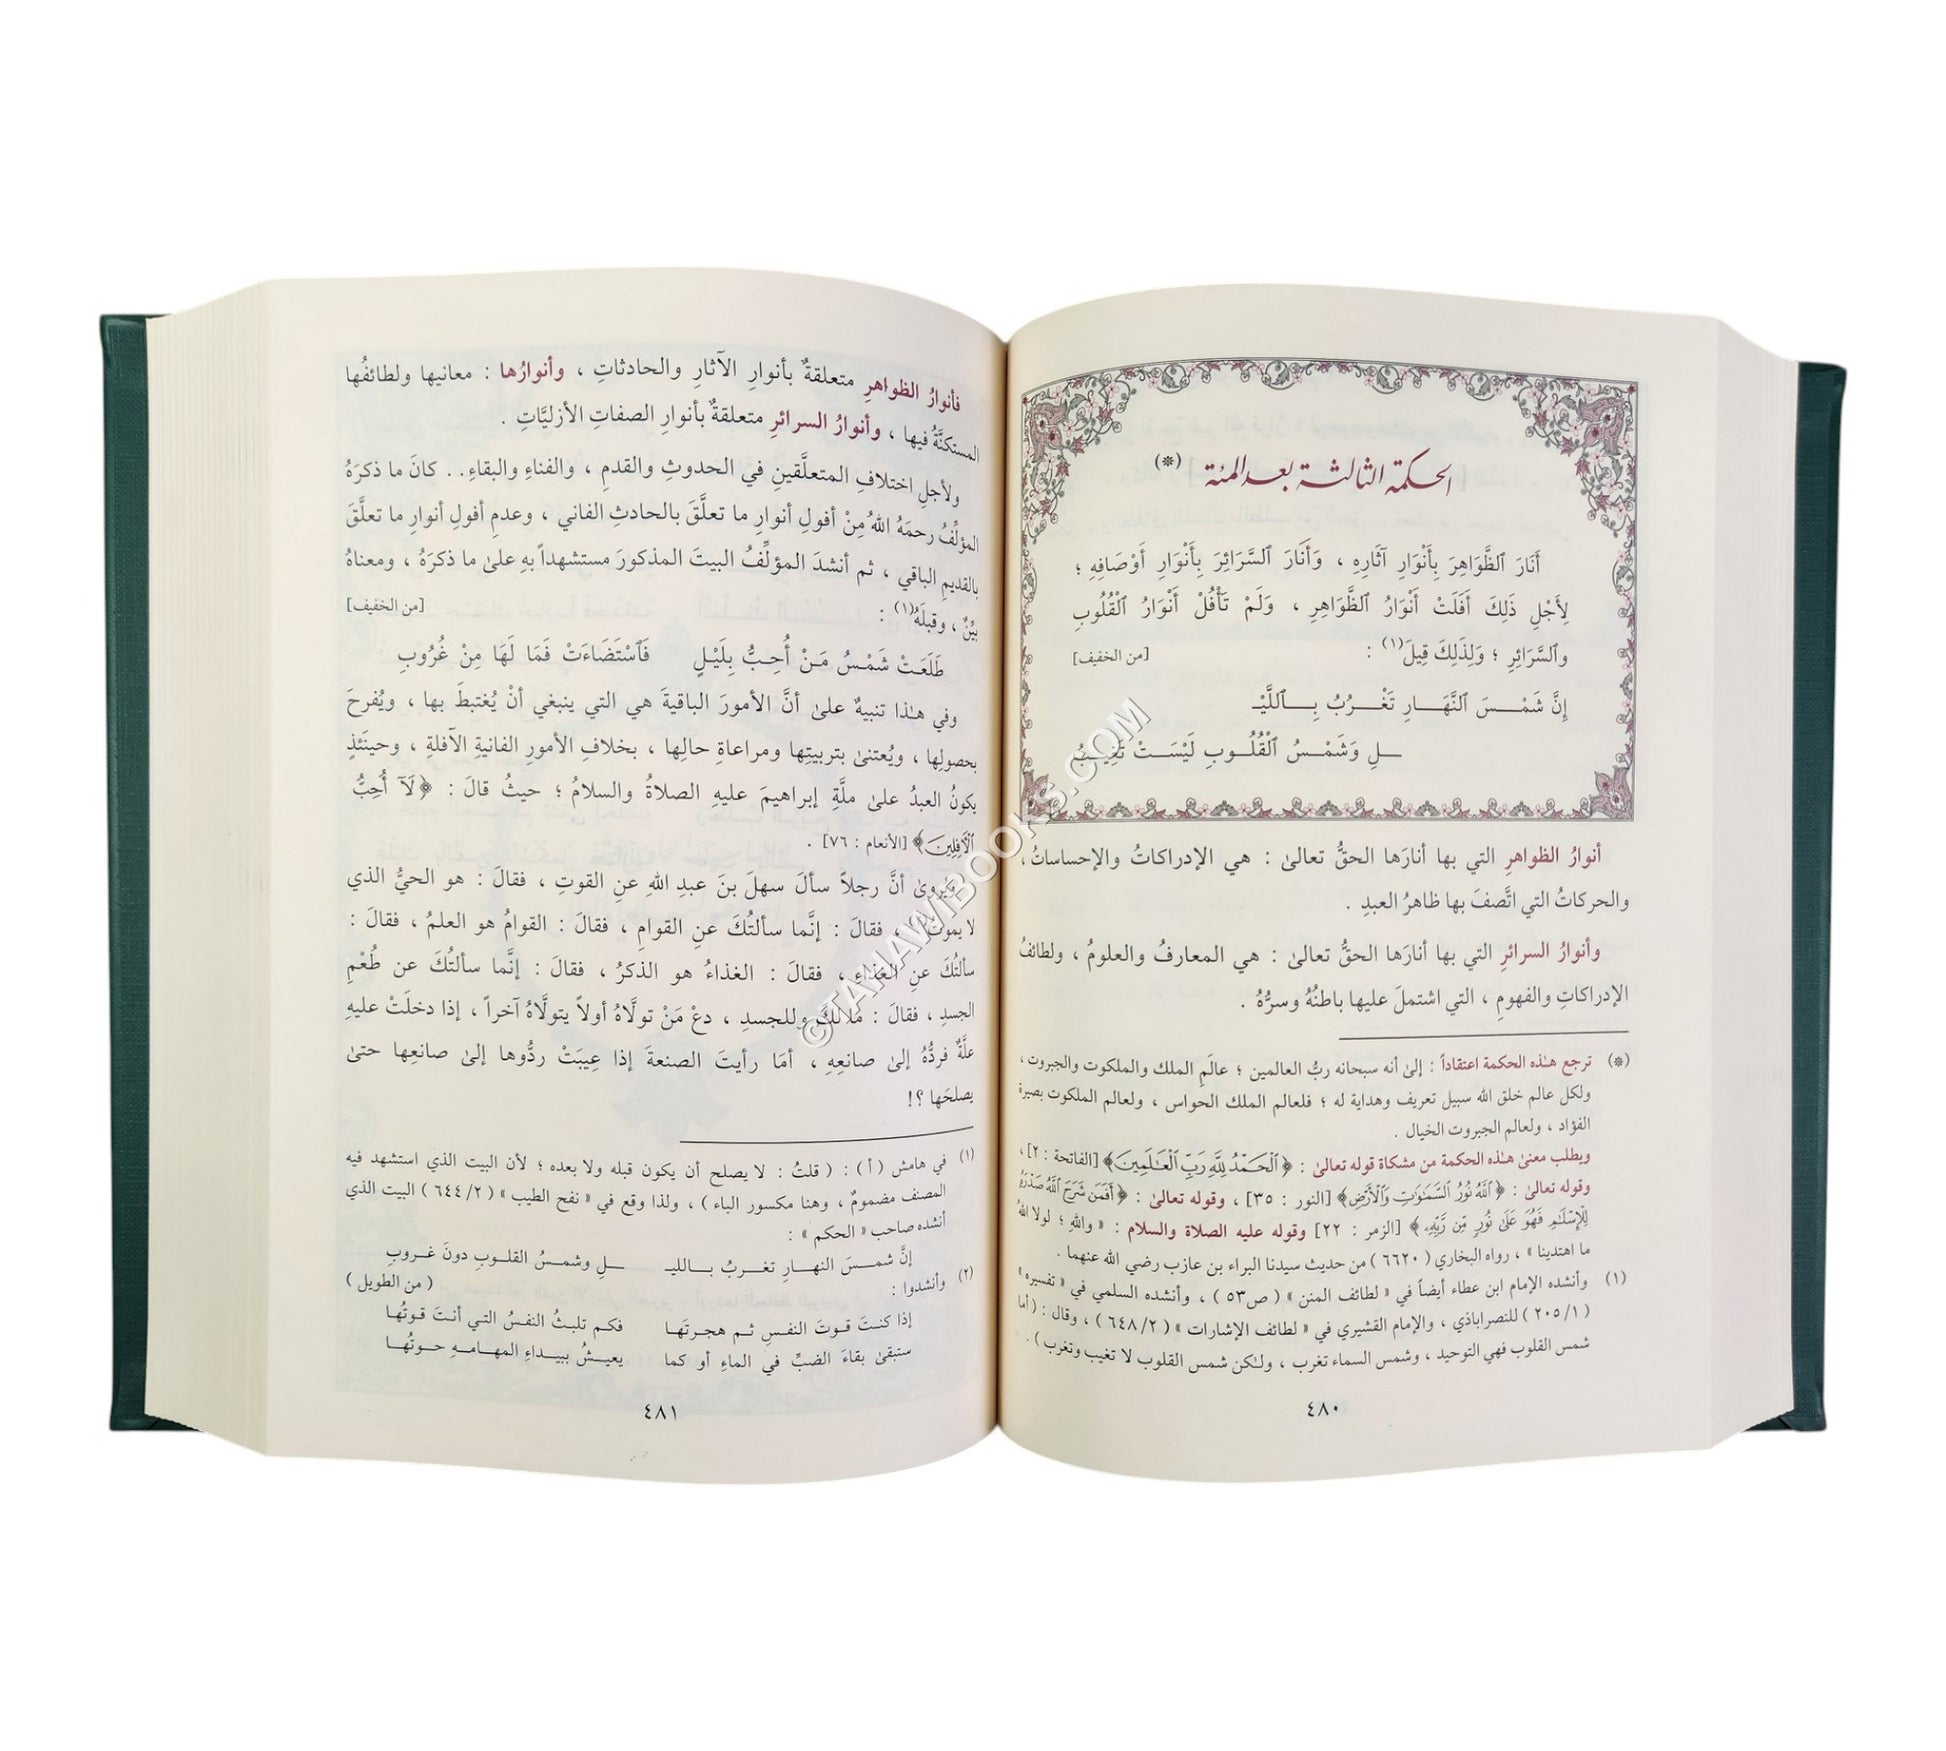 الحكمة الثالثة بعد المئة (*)
أَنَارَ ٱلظَّوَاهِرَ بِأَنْوَارِ آثَارِهِ ، وَأَنَارَ ٱلسَّرَائِرَ بِأَنْوَارِ أَوْصَافِهِ ؛
لِأَجْلِ ذَلِكَ أَفَلَتْ أَنْوَارُ ٱلظَّوَاهِرِ ، وَلَمْ تَأْفُلْ أَنْوَارُ ٱلْقُلُوبِ
وٱلسَّرَائِرِ ؛ وَلِذَلِكَ قِيلَ(١) : [من الخفيف]
إِنَّ شَمْسَ ٱلنَّهَارِ تَغْرُبُ بِٱللَّيْـ
ـلِ وَشَمْسُ ٱلْقُلُوبِ لَيْسَتْ تَغِيبُ
أنوارُ الظواهرِ التي بها أنارَها الحقُّ تعالىٰ : هي الإدراكاتُ والإحساساتُ ،
والحركاتُ التي اتَّصفَ بها ظاهرُ العبدِ .
وأنوارُ السرائرِ التي بها أنارَها الحقُّ تعالىٰ : هي المعارفُ والعلومُ ، ولطائفُ
الإدراكاتِ والفهومِ ، التي اشتملَ عليها باطنُهُ وسرُّهُ .
(*) ترجع هـٰذه الحكمة اعتقاداً : إلىٰ أنه سبحانه ربُّ العالمين ؛ عالَمِ الملك والملكوت والجبروت ،
ولكل عالم خلق الله سبيل تعريف وهداية له ؛ فلعالم الملك الحواس ، ولعالم الملكوت بصيرة
الفؤاد ، ولعالم الجبروت الخيال .
ويطلب معنىٰ هـٰذه الحكمة من مشكاة قوله تعالىٰ : ﴿ٱلْحَمْدُ لِلَّهِ رَبِّ ٱلْعَـٰلَمِينَ﴾ [الفاتحة : ٢] ،
وقوله تعالىٰ : ﴿ٱللَّهُ نُورُ ٱلسَّمَـٰوَٰتِ وَٱلْأَرْضِ﴾ [النور : ٣٥] ، وقوله تعالىٰ : ﴿أَفَمَن شَرَحَ ٱللَّهُ صَدْرَهُ
لِلْإِسْلَـٰمِ فَهُوَ عَلَىٰ نُورٍ مِّن رَّبِّهِ﴾ [الزمر : ٢٢] وقوله عليه الصلاة والسلام : « واللهِ ؛ لولا اللهُ
ما اهتدينا » ، رواه البخاري ( ٦٦٢٠ ) من حديث سيدنا البراء بن عازب رضي الله عنهما .
(١) وأنشده الإمام ابن عطاء أيضاً في « لطائف المنن » ( ص٥٣ ) ، وأنشده السلمي في « تفسيره »
( ٢٠٥/١ ) للنصراباذي ، والإمام القشيري في « لطائف الإشارات » ( ٦٤٨/٢ ) ، وقال : ( أما
شمس القلوب فهي التوحيد ، وشمس السماء تغرب ، ولـٰكن شمس القلوب لا تغيب وتغرب ) .
٤٨٠
فأنوارُ الظواهرِ متعلقةٌ بأنوارِ الآثارِ والحادثاتِ ، وأنوارُها : معانيها ولطائفُها
المستكنَّةُ فيها ، وأنوارُ السرائرِ متعلقةٌ بأنوارِ الصفاتِ الأزليَّاتِ .
ولأجلِ اختلافِ المتعلَّقينِ في الحدوثِ والقدمِ ، والفناءِ والبقاءِ . . كانَ ما ذكرَهُ
المؤلِّفُ رحمَهُ اللهُ مِنْ أفولِ أنوارِ ما تعلَّقَ بالحادثِ الفاني ، وعدمِ أفولِ أنوارِ ما تعلَّقَ
بالقديمِ الباقي ، ثم أنشدَ المؤلِّفُ البيتَ المذكورَ مستشهداً بهِ علىٰ ما ذكرَهُ ، ومعناهُ
بيِّنٌ ، وقبلَهُ(١) : [من الخفيف]
طَلَعَتْ شَمْسُ مَنْ أُحِبُّ بِلَيْلٍ فَٱسْتَضَاءَتْ فَمَا لَهَا مِنْ غُرُوبِ
وفي هـٰذا تنبيهٌ علىٰ أنَّ الأمورَ الباقيةَ هي التي ينبغي أنْ يُغتبطَ بها ، ويُفرحَ
بحصولِها ، ويُعتنىٰ بتربيتِها ومراعاةِ حالِها ، بخلافِ الأمورِ الفانيةِ الآفلةِ ، وحينَئذٍ
يكونُ العبدُ علىٰ ملَّةِ إبراهيمَ عليهِ الصلاةُ والسلامُ ؛ حيثُ قالَ : ﴿لَآ أُحِبُّ
ٱلْآفِلِينَ﴾ [الأنعام : ٧٦] .
ويُروىٰ أنَّ رجلاً سألَ سهلَ بنَ عبدِ اللهِ عنِ القوتِ ، فقالَ : هو الحيُّ الذي
لا يموتُ ، فقالَ : إنَّما سألتُكَ عنِ القوامِ ، فقالَ : القوامُ هو العلمُ ، فقالَ :
سألتُكَ عنِ الغذاءِ ، فقالَ : الغذاءُ هو الذكرُ ، فقالَ : إنَّما سألتُكَ عن طُعْمِ
الجسدِ ، فقالَ : ما لَكَ وللجسدِ ، دعْ مَنْ تولَّاهُ أولاً يتولَّاهُ آخراً ، إذا دخلَتْ عليهِ
علَّةٌ فردُّهُ إلىٰ صانعِهِ ، أمَا رأيتَ الصنعةَ إذا عِيبَتْ ردُّوها إلىٰ صانعِها حتىٰ
يصلحَها ؟!
(١) في هامش ( أ ) : ( قلتُ : لا يصلح أن يكون قبله ولا بعده ؛ لأن البيت الذي استشهد فيه
المصنف مضمومٌ ، وهنا مكسور الباء ) ، ولذا وقع في « نفح الطيب » ( ٦٤٤/٢ ) البيت الذي
أنشده صاحب « الحكم » :
إنَّ شمـسَ النهـارِ تغـربُ بـالليـ ـلِ وشمسُ القلـوبِ دونَ غـروبِ
(٢) وأنشدوا : ( من الطويل )
إذا كنـتَ قـوتَ النفـسِ ثـم هجـرتَهـا فكـم تلبـثُ النفـسُ التي أنـتَ قـوتُهـا
ستبقىٰ بقاءَ الضبِّ في الماءِ أو كما يعيـشُ ببيـداءِ المهـامـهِ حـوتُهـا
٤٨١
© TAHAWIBOOKS.COM